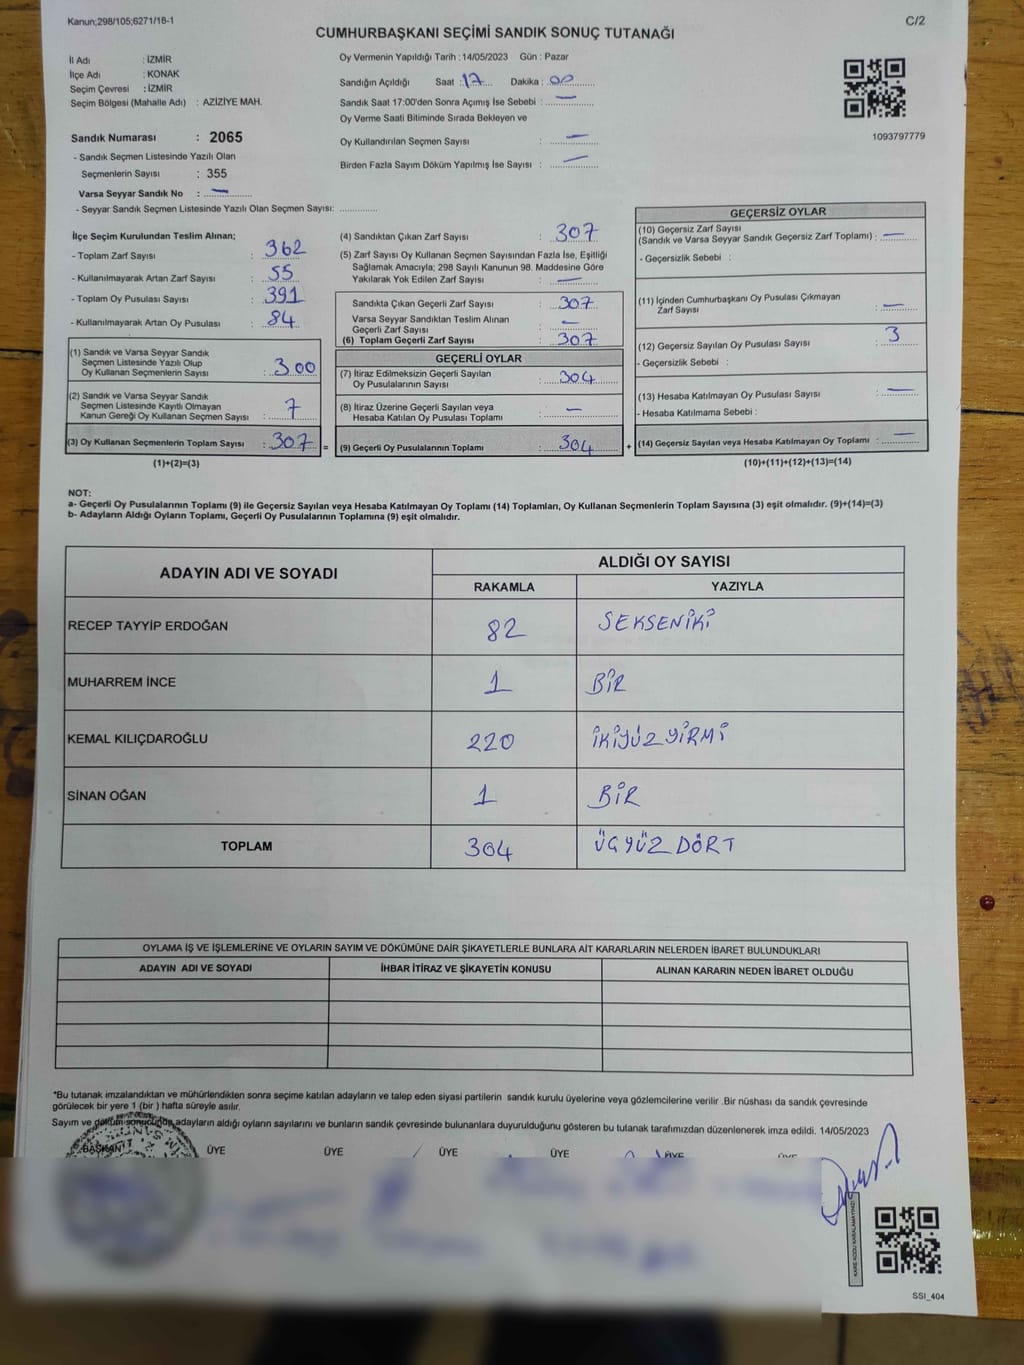 Kanun;298/105;6271/16-1
C/2
CUMHURBAŞKANI SEÇİMİ SANDIK SONUÇ TUTANAĞI
İl Adı : İZMİR
İlçe Adı : KONAK
Seçim Çevresi : İZMİR
Seçim Bölgesi (Mahalle Adı) : AZİZİYE MAH.
Sandık Numarası : 2065
- Sandık Seçmen Listesinde Yazılı Olan
Seçmenlerin Sayısı : 355
Varsa Seyyar Sandık No : —
- Seyyar Sandık Seçmen Listesinde Yazılı Olan Seçmen Sayısı: ..............
Oy Vermenin Yapıldığı Tarih : 14/05/2023 Gün : Pazar
Sandığın Açıldığı Saat : 17 Dakika : 00
Sandık Saat 17:00'den Sonra Açımış İse Sebebi : —
Oy Verme Saati Bitiminde Sırada Bekleyen ve
Oy Kullandırılan Seçmen Sayısı : —
Birden Fazla Sayım Döküm Yapılmış İse Sayısı : —
1093797779
İlçe Seçim Kurulundan Teslim Alınan;
- Toplam Zarf Sayısı : 362
- Kullanılmayarak Artan Zarf Sayısı : 55
- Toplam Oy Pusulası Sayısı : 391
- Kullanılmayarak Artan Oy Pusulası : 84
(1) Sandık ve Varsa Seyyar Sandık
Seçmen Listesinde Yazılı Olup
Oy Kullanan Seçmenlerin Sayısı : 300
(2) Sandık ve Varsa Seyyar Sandık
Seçmen Listesinde Kayıtlı Olmayan
Kanun Gereği Oy Kullanan Seçmen Sayısı : 7
(3) Oy Kullanan Seçmenlerin Toplam Sayısı : 307 =
(1)+(2)=(3)
(4) Sandıktan Çıkan Zarf Sayısı : 307
(5) Zarf Sayısı Oy Kullanan Seçmen Sayısından Fazla İse, Eşitliği
Sağlamak Amacıyla; 298 Sayılı Kanunun 98. Maddesine Göre
Yakılarak Yok Edilen Zarf Sayısı : —
Sandıkta Çıkan Geçerli Zarf Sayısı : 307
Varsa Seyyar Sandıktan Teslim Alınan
Geçerli Zarf Sayısı : —
(6) Toplam Geçerli Zarf Sayısı : 307
GEÇERLİ OYLAR
(7) İtiraz Edilmeksizin Geçerli Sayılan
Oy Pusulalarının Sayısı : 304
(8) İtiraz Üzerine Geçerli Sayılan veya
Hesaba Katılan Oy Pusulası Toplamı : —
(9) Geçerli Oy Pusulalarının Toplamı : 304 +
GEÇERSİZ OYLAR
(10) Geçersiz Zarf Sayısı
(Sandık ve Varsa Seyyar Sandık Geçersiz Zarf Toplamı) : —
- Geçersizlik Sebebi :
(11) İçinden Cumhurbaşkanı Oy Pusulası Çıkmayan
Zarf Sayısı : —
(12) Geçersiz Sayılan Oy Pusulası Sayısı : 3
- Geçersizlik Sebebi :
(13) Hesaba Katılmayan Oy Pusulası Sayısı : —
- Hesaba Katılmama Sebebi :
(14) Geçersiz Sayılan veya Hesaba Katılmayan Oy Toplamı : —
(10)+(11)+(12)+(13)=(14)
NOT:
a- Geçerli Oy Pusulalarının Toplamı (9) ile Geçersiz Sayılan veya Hesaba Katılmayan Oy Toplamı (14) Toplamları, Oy Kullanan Seçmenlerin Toplam Sayısına (3) eşit olmalıdır. (9)+(14)=(3)
b- Adayların Aldığı Oyların Toplamı, Geçerli Oy Pusulalarının Toplamına (9) eşit olmalıdır.
ADAYIN ADI VE SOYADI
ALDIĞI OY SAYISI
RAKAMLA YAZIYLA
RECEP TAYYİP ERDOĞAN 82 SEKSENİKİ
MUHARREM İNCE 1 BİR
KEMAL KILIÇDAROĞLU 220 İKİYÜZYİRMİ
SİNAN OĞAN 1 BİR
TOPLAM 304 ÜÇYÜZ DÖRT
OYLAMA İŞ VE İŞLEMLERİNE VE OYLARIN SAYIM VE DÖKÜMÜNE DAİR ŞİKAYETLERLE BUNLARA AİT KARARLARIN NELERDEN İBARET BULUNDUKLARI
ADAYIN ADI VE SOYADI İHBAR İTİRAZ VE ŞİKAYETİN KONUSU ALINAN KARARIN NEDEN İBARET OLDUĞU
*Bu tutanak imzalandıktan ve mühürlendikten sonra seçime katılan adayların ve talep eden siyasi partilerin sandık kurulu üyelerine veya gözlemcilerine verilir .Bir nüshası da sandık çevresinde
görülecek bir yere 1 (bir ) hafta süreyle asılır.
Sayım ve döküm sonucunda adayların aldığı oyların sayılarını ve bunların sandık çevresinde bulunanlara duyurulduğunu gösteren bu tutanak tarafımızdan düzenlenerek imza edildi. 14/05/2023
BAŞKAN ÜYE ÜYE ÜYE ÜYE ÜYE ÜYE
KARE KODU KARALAMAYINIZ
SSI_404